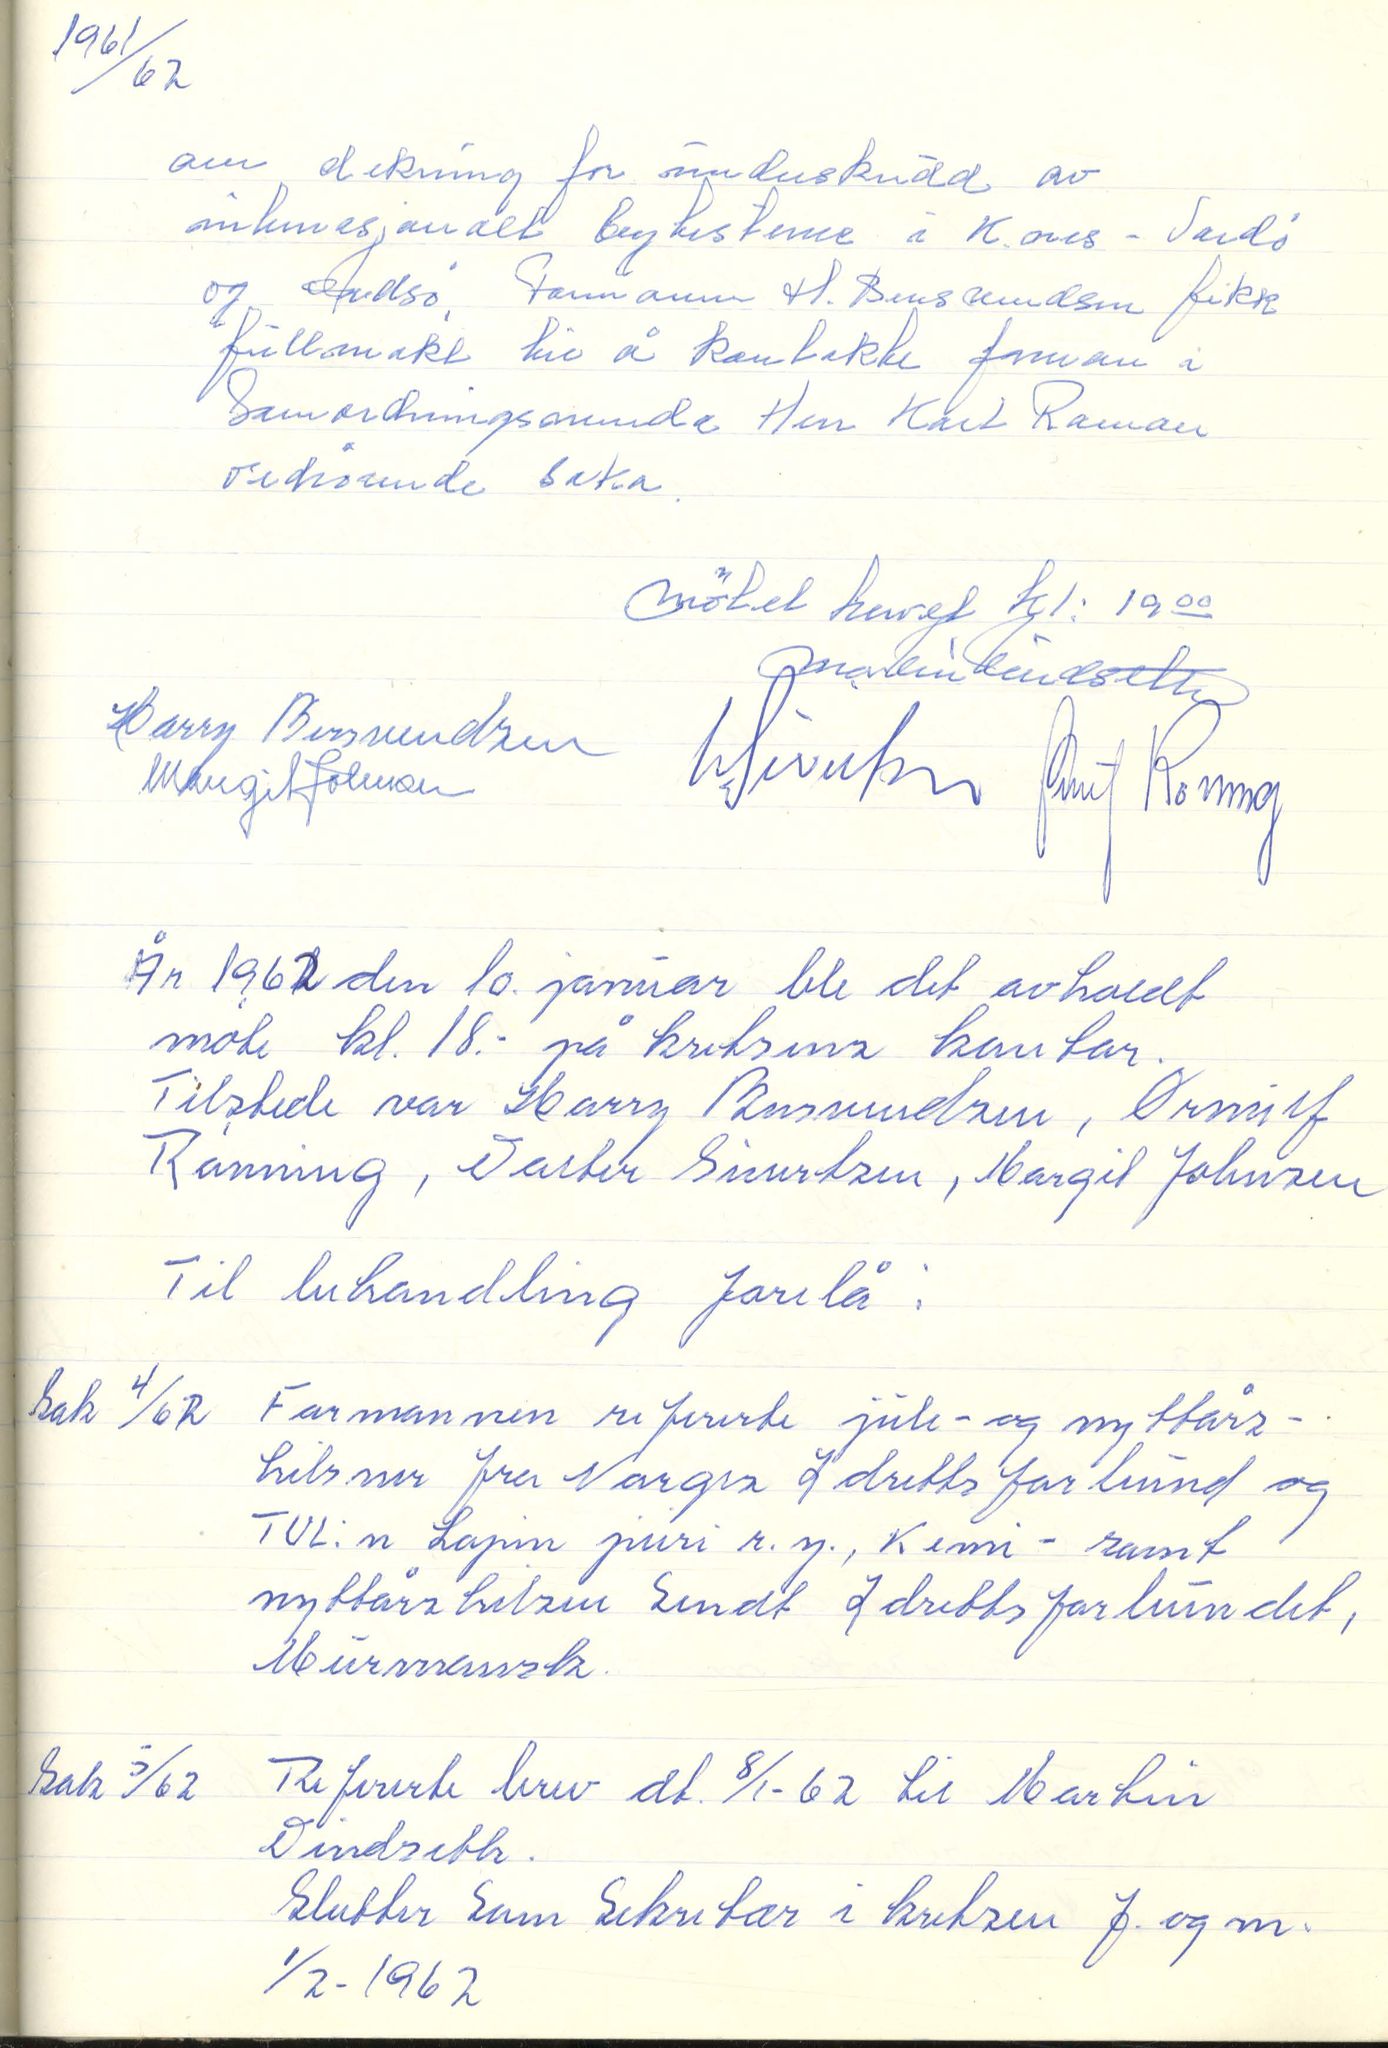 1961/62
om dekning for underskudd av
internasjonalt bryte stevne i K.nes - Vardø
og Vadsø, Formann H. Bensvendsen fikk
fullmakt til å kontakte forman i
Samordningsnemda Herr Karl
vedrørende saka.
Møtet hevet kl: 19 00
Martin Vindsetth
Harry Bensvendsen
Margit Johnsen
W Sivertsen
Rønning
År 1962 den 10. januar ble det avholdt
møte kl. 18.- på kretsens kontor.
Tilstede var Harry Bensvendsen, Ørnulf
Rønning, Valter Sivertsen, Margit Johnsen
Til behandling forelå:
Sak 4/62 Formannen refererte jule- og nyttårs-
hilsner fra Norges Idrettsforbund og
TUL:n Lapin piiri r.y., Kemi - samt
nyttårshilsen sendt Idrettsforbundet,
Murmansk.
Sak 5/62 Refererte brev dt. 8/1-62 til Martin
Vindsetth.
Slutter som sekretær i kretsen f. og m.
1/2-1962